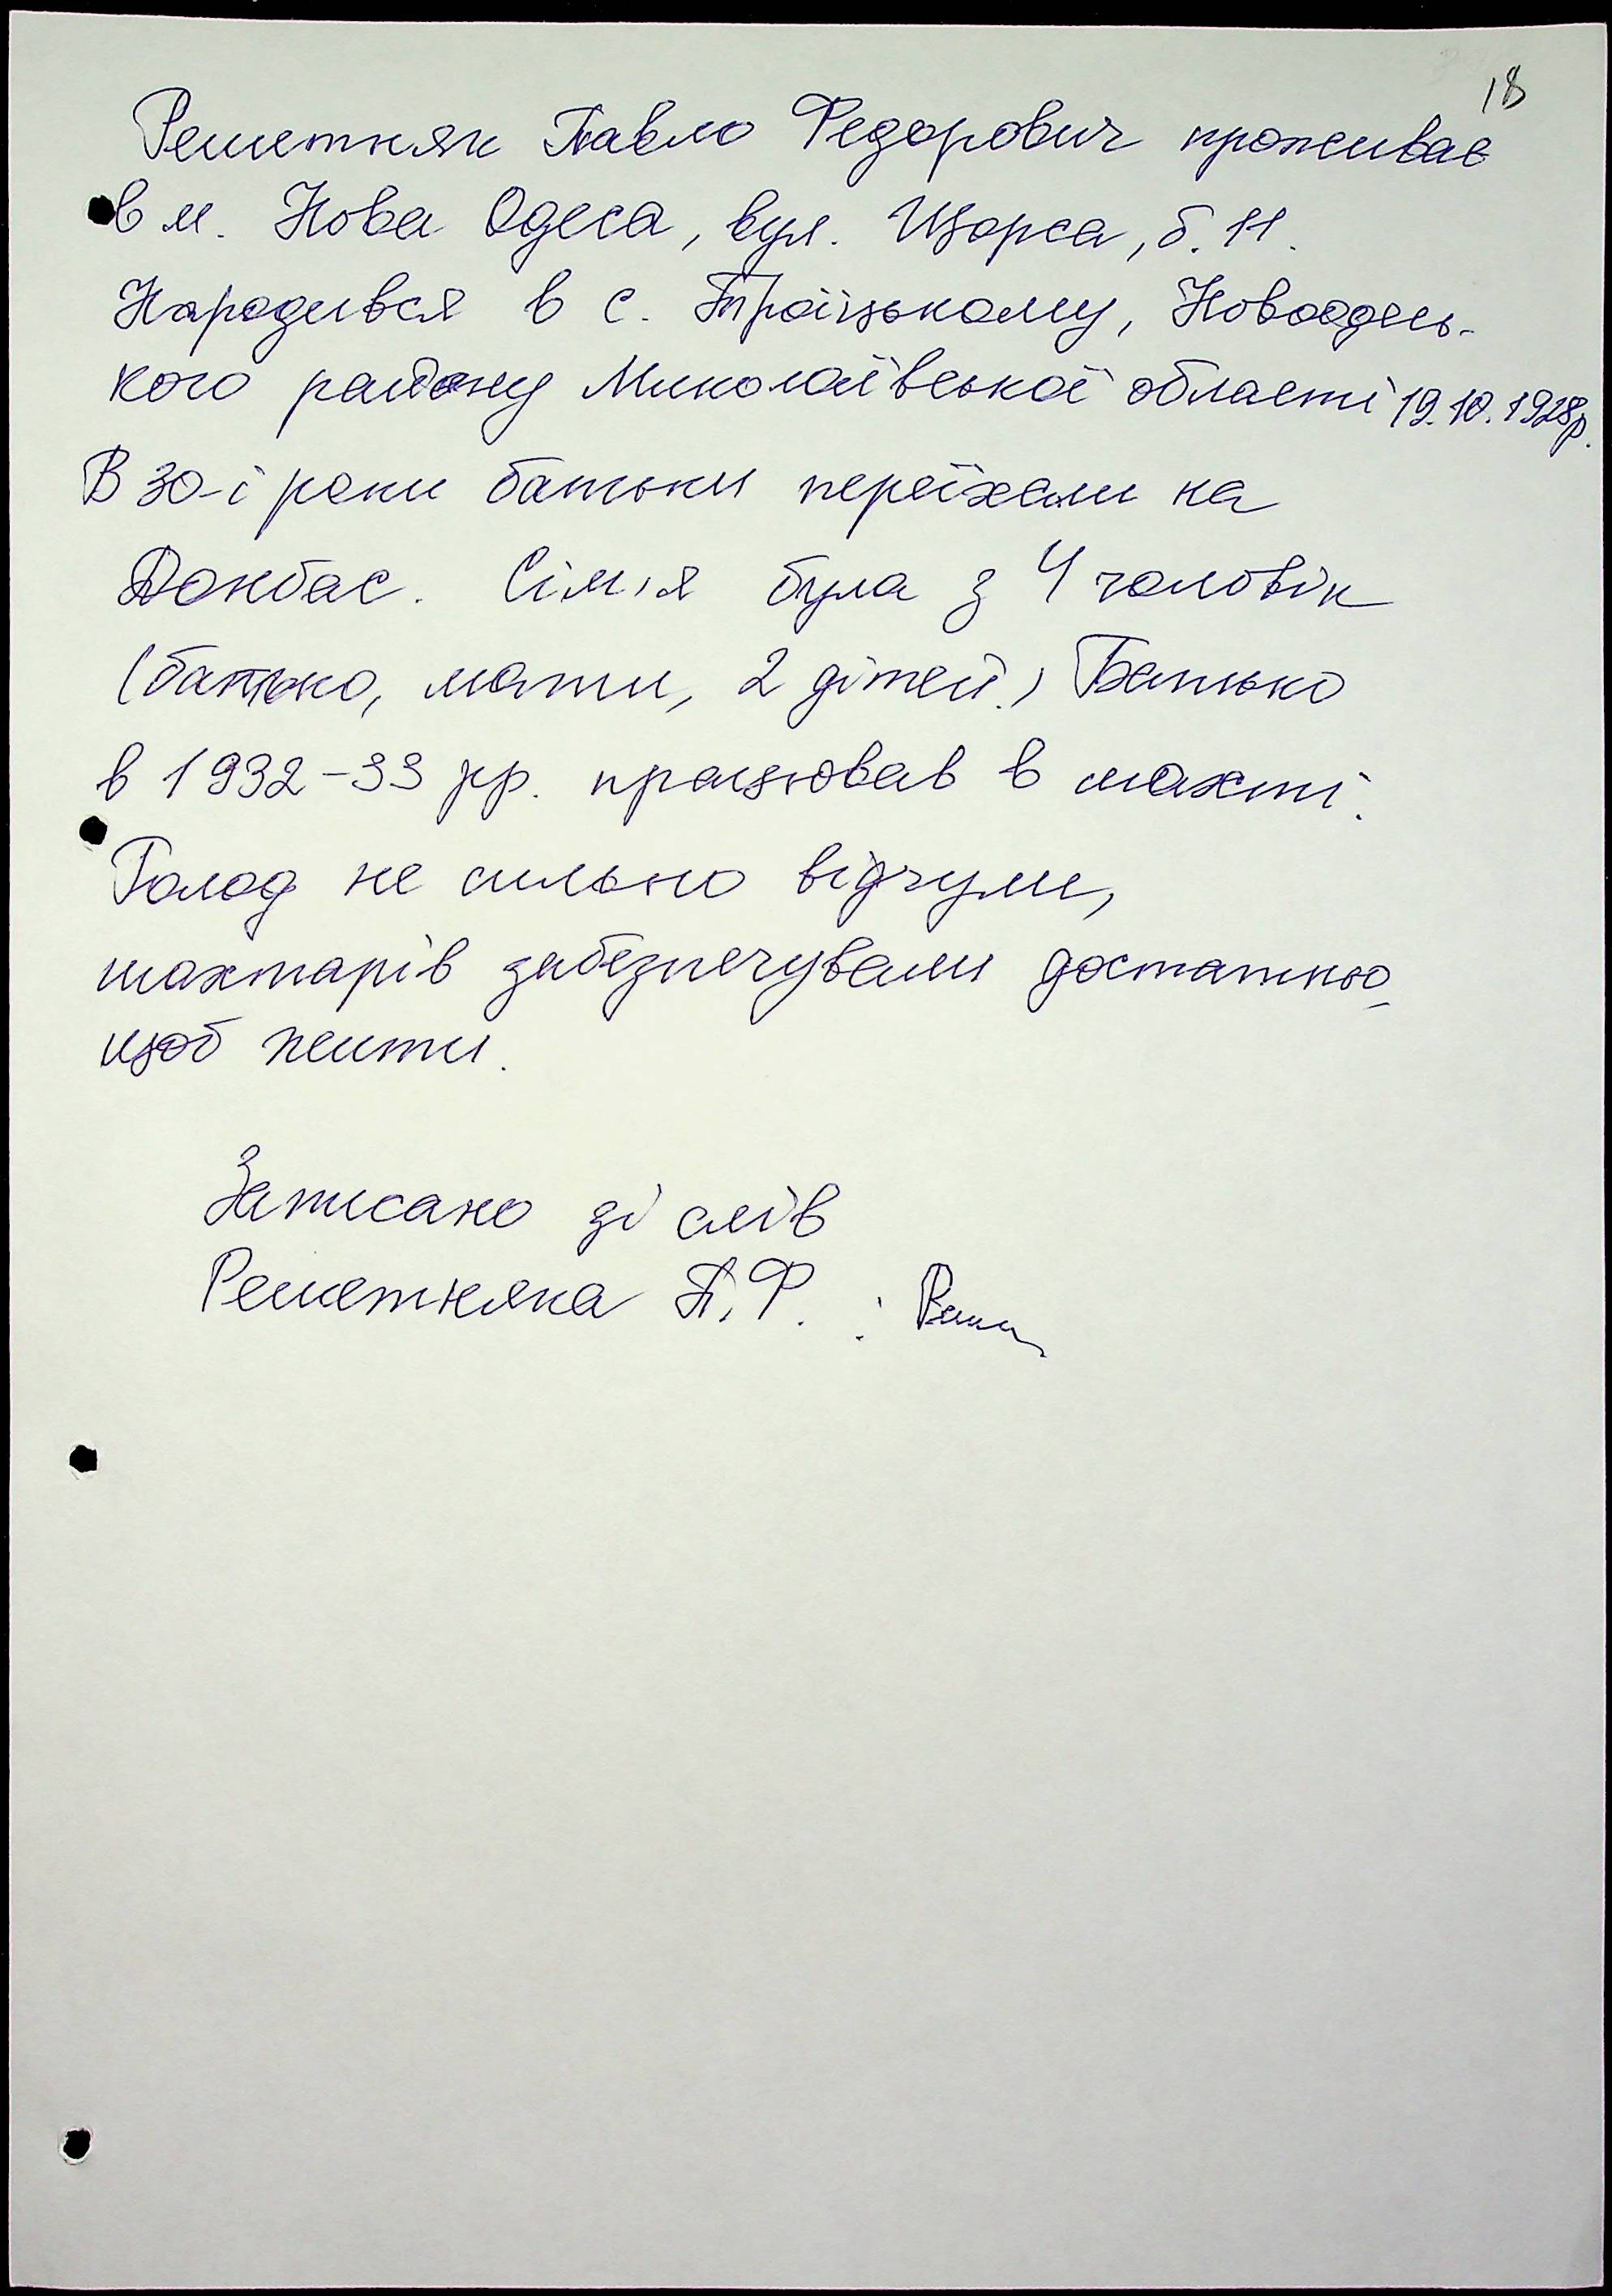 18
Решетняк Павло Федорович проживає
в м. Нова Одеса, вул. Щорса, б. 11.
Народився в с. Троїцькому, Новоодесь-
кого району Миколаївської області 19.10.1928р.
В 30-і роки батьки переїхали на
Донбас. Сім'я була з 4 чоловік
(батько, мати, 2 дітей.) Батько
в 1932-33 рр. працював в шахті.
Голод не сильно відчули,
шахтарів забезпечували достатньо,
щоб жити.
Записано зі слів
Решетняка П.Ф. :